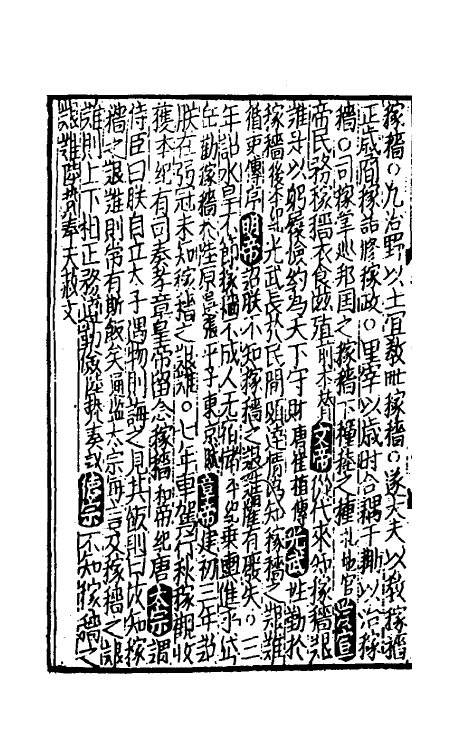 稼穡○九治野以土宜教甿稼穡○遂大夫以教稼穡
正歲簡稼器修稼政○里宰以歲时合耦于耡以治稼
穡○司稼掌巡邦国之稼穡下種穜之種礼地官漢宣
帝民务稼穡衣食滋殖前本贊文帝從代來知稼穡艱
難身以躬履儉約為天下守財唐崔植傳光武性勤於
稼穡後本紀光武長於民間頗達情偽知稼穡之艱難
循吏傳序明帝詔朕不知稼穡之艱難懼有廢失○三
年出水皇不節稼穡不成人无宿儲平紀乗輿進
勸稼穡於原憙張平子東京賦章帝建初三年詔
朕在弱冠未知稼穡之艱難○七年車駕行秋稼觀收
穫本紀有司奏孝章皇帝留念稼穡和帝紀唐太宗謂
侍臣曰朕自立太子遇物則誨之見其飯則曰汝知稼
穡之艱難則常有斯飯矣通鑑太宗每言及稼穡之艱
難則上下相正務遵勤儉陸贄奏議德宗不知稼穡之
艱難陸贄奉天敕文